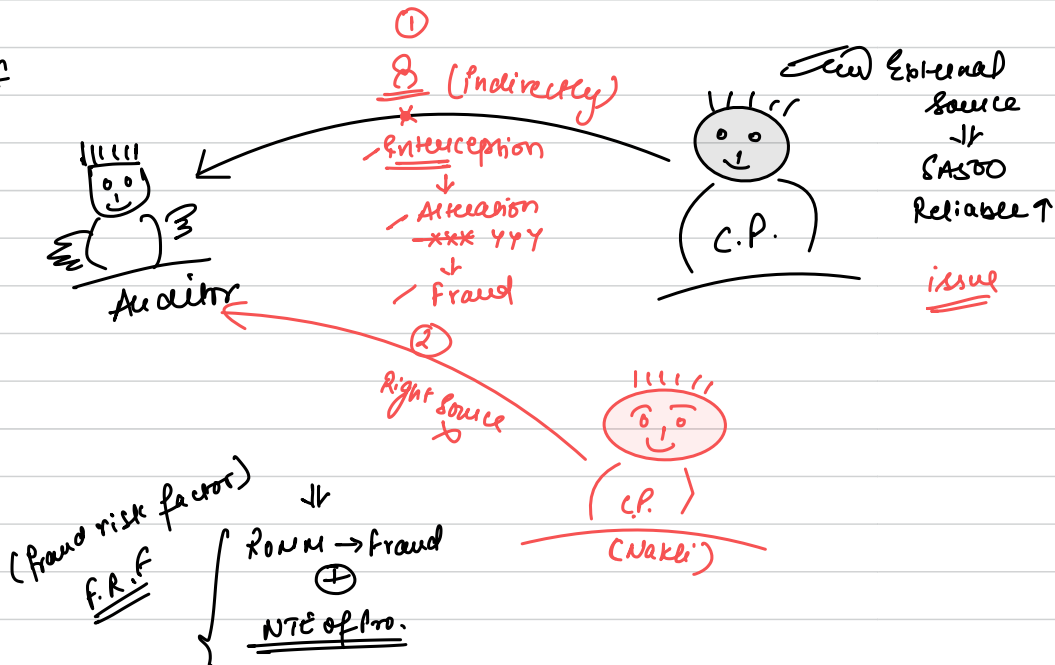 ①
(indirectly)
Interception
Alteration
xxx yyy
Fraud
External
Source
SA500
Reliable ↑
issue
C.P.
Auditor
②
Right Source
C.P.
(Nakli)
(fraud risk factor)
F.R.F
ROMM → Fraud
+
NTE of Pro.